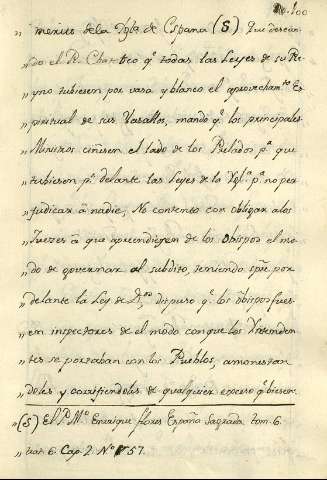 100
„ menies de la Ygla de España (S) Que desean-
„ do el R. Chatolico qe todas las Leyes de su Re-
„ yno tubiesen por vasa y blanco el aprovechamto Es-
„ piritual de sus Vasallos, mandó qe los principales
„ Ministros ciñesen el lado de los Prelados pa que
„ tubiesen pr delante las Leyes de la Yglã pa no per-
„ judicar â nadie, No contento con obligar a los
„ Juezes â que aprendiesen de los obispos el mo-
„ do de governar al subdito, teniendo spre por
„ delante la Ley de Ds, dispuso qe los obispos fues-
„ en inspectores de el modo con que los Yntenden-
„ tes se portaban con los Pueblos, amonestan
„ doles y corrijiendoles de qualquier exceso qe hiciesen.
„ (S) El P. Mo Enrrique flores España Sagrada tom. 6.
„ trat. 6. Cap. 2. No 57.